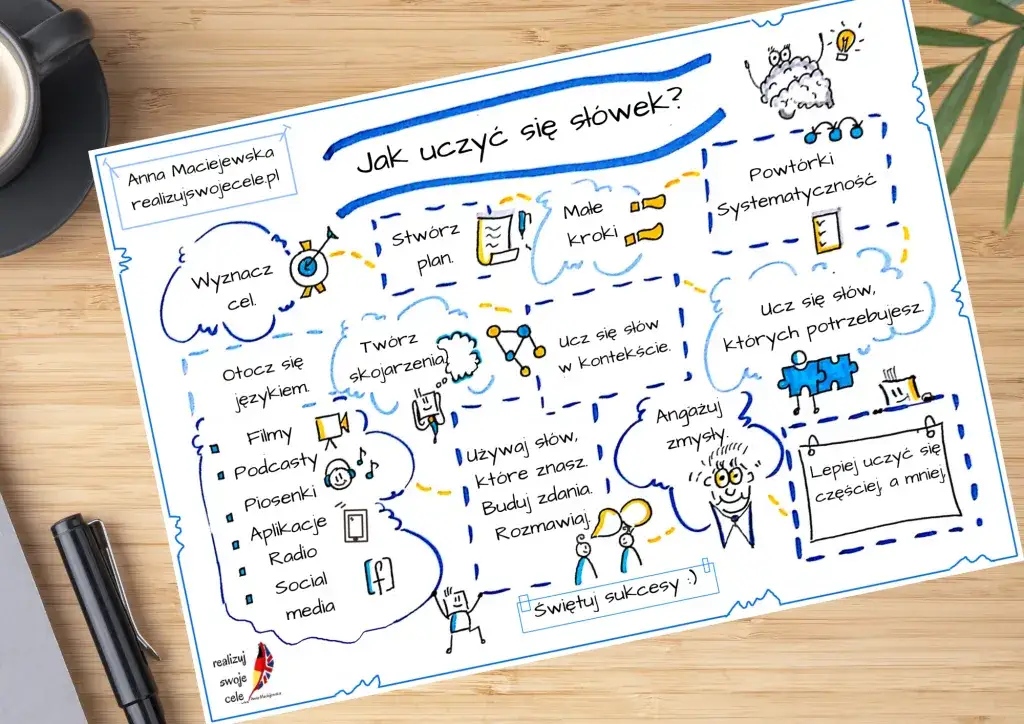 Jak uczyć się słówek?
Anna Maciejewska
realizujswojecele.pl
Wyznacz
cel.
Stwórz
plan.
Małe
kroki
Powtórki
Systematyczność
Otocz się
językiem.
Filmy
Podcasty
Piosenki
Aplikacje
Radio
Social
media
Twórz
skojarzenia
Ucz się słów
w kontekście.
Ucz się słów,
których potrzebujesz.
Używaj słów,
które znasz.
Buduj zdania.
Rozmawiaj.
Angażuj
zmysły.
Lepiej uczyć się
częściej a mniej.
Świętuj sukcesy :)
realizuj
swoje
cele